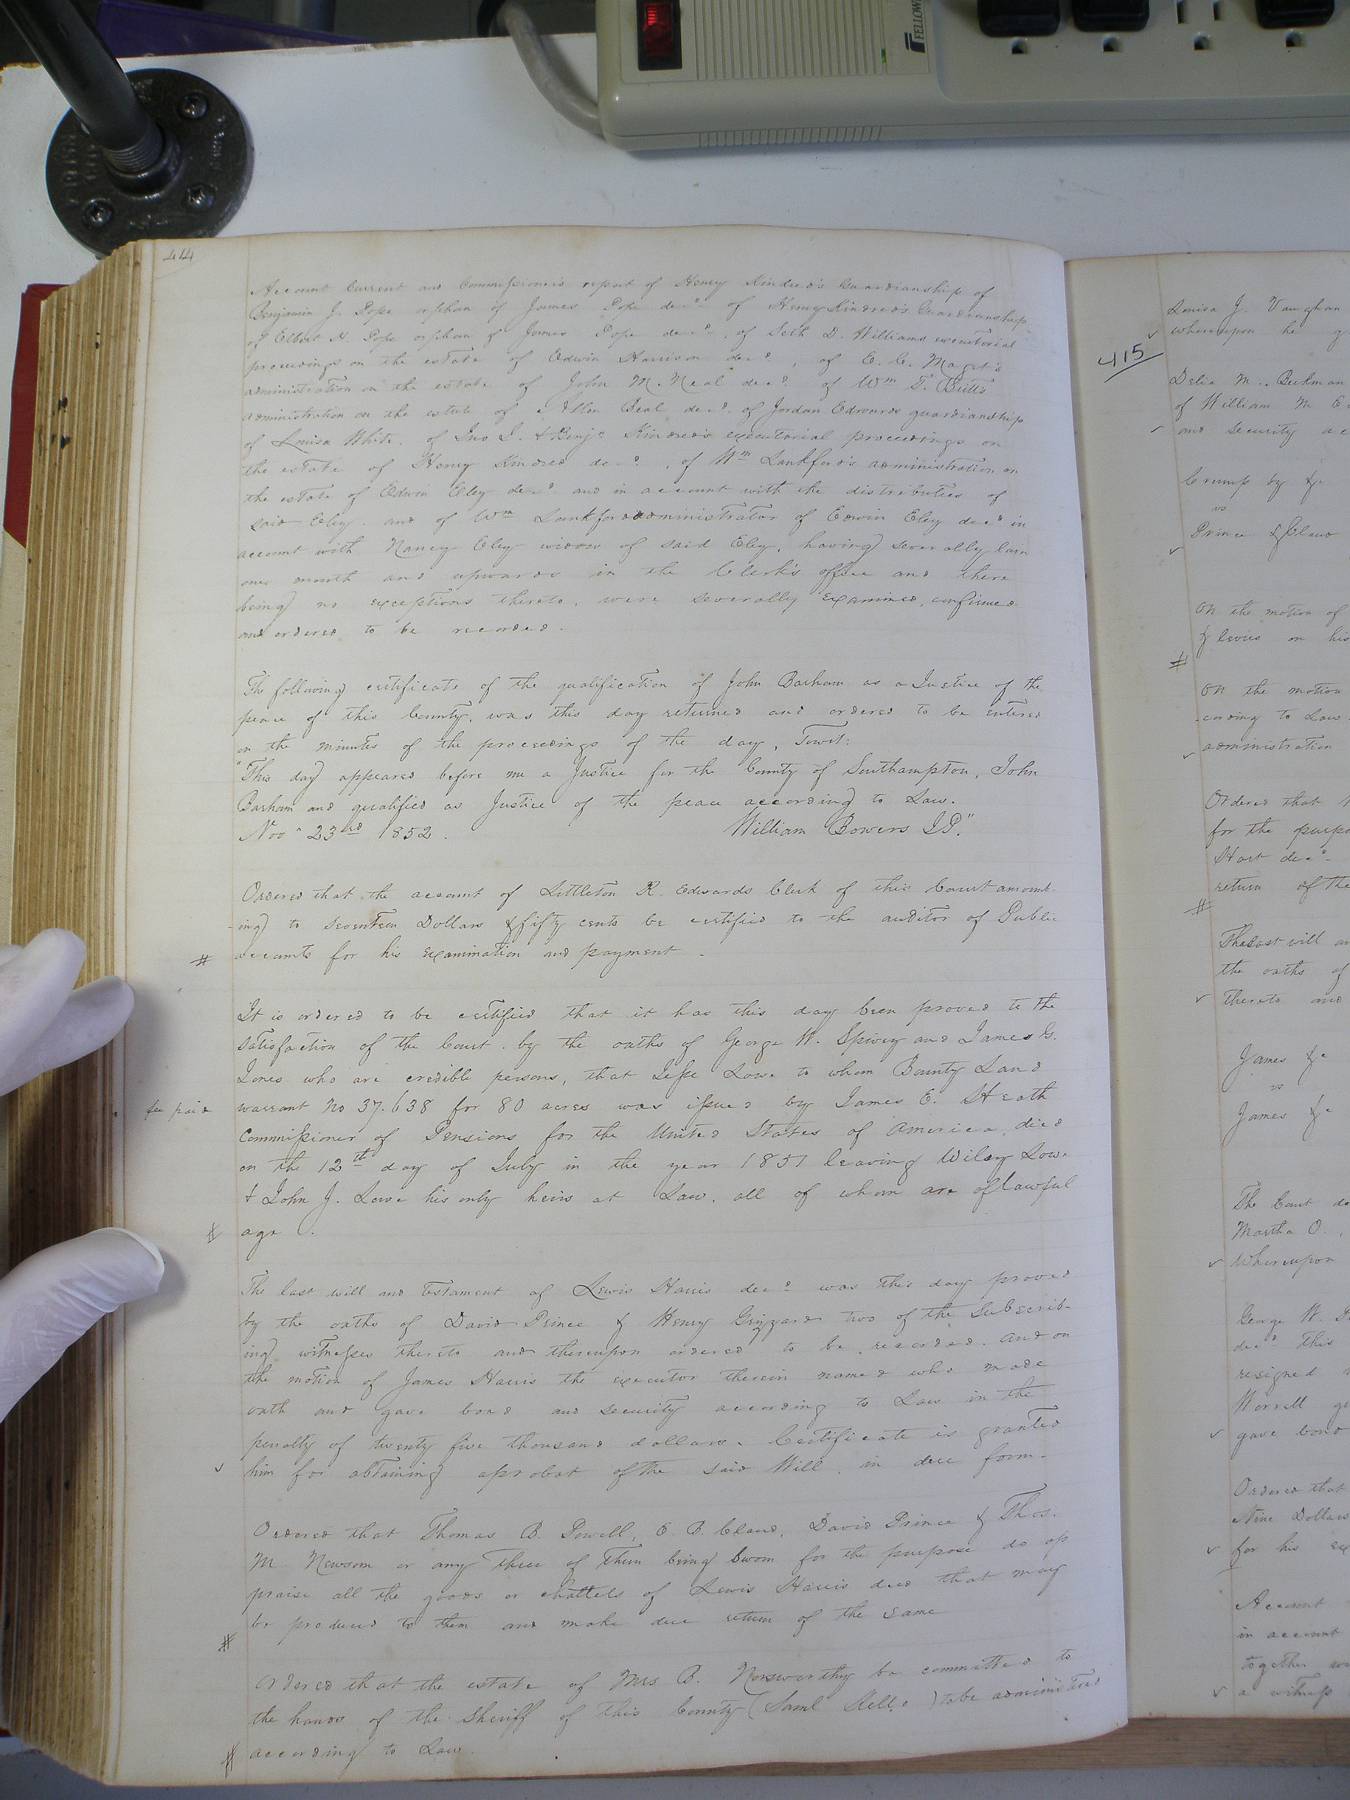 414
Account Current and Commissioners report of Henry Kindred's Guardianship of
Benjamin J. Pope orphan of James Pope decd. of Henry Kindred's Guardianship
of Elbert H. Pope orphan of James Pope decd. of Seth D. Williams executorial
proceedings on the estate of Edwin Harrison decd., of E. C. Maget's
administration on the estate of John M. Neal decd. of Wm T. Butts
administration on the estate of Allen Beal decd. of Jordan Edwards guardianship
of Louisa White. of Jno J. & Benja Kindred's executorial proceedings on
the estate of Henry Kindred decd., of Wm Lankford's administration on
the estate of Edwin Eley decd. and in account with the distributees of
said Eley. and of Wm Lankford administrator of Edwin Eley decd in
account with Nancy Eley widow of said Eley, having severally lain
one month and upwards in the Clerk's office and there
being no exceptions thereto, were severally examined, confirmed
and ordered to be recorded.
The following certificate of the qualification of John Barham as a Justice of the
peace of this County, was this day returned and ordered to be entered
on the minutes of the proceedings of the day, Towit:
"This day appeared before me a Justice for the County of Southampton, John
Barham and qualified as Justice of the peace according to Law.
Nov 23rd 1852. William Bowers J.P."
Ordered that the account of Littleton R. Edwards Clerk of this Court amount-
-ing to Seventeen Dollars & fifty cents be certified to the auditor of Public
# accounts for his examination and payment.
It is ordered to be certified that it has this day been proved to the
satisfaction of the Court. by the oaths of George W. Spivey and James G.
Jones who are credible persons, that Jesse Lowe to whom Bounty Land
fee paid warrant No 37.638 for 80 acres was issued by James E. Heath
Commissioner of Pensions for the United States of America, died
on the 12th day of July in the year 1851 leaving Wiley Lowe
& John J. Lowe his only heirs at Law, all of whom are of lawful
# age.
The last will and testament of Lewis Harris decd was this day proved
by the oaths of David Prince & Henry Grizzard two of the Subscrib-
ing witnesses thereto and thereupon ordered to be recorded. and on
the motion of James Harris the executor therein named who made
oath and gave bond and security according to Law in the
penalty of twenty five thousand dollars. Certificate is granted
him for obtaining a probat of the said Will in due form.
Ordered that Thomas B. Powell, E. B. Claud, David Prince & Thos.
M. Newsom or any three of them being sworn for the purpose do ap
praise all the goods or chattels of Lewis Harris decd that may
be produced to them and make due return of the same
#
Ordered that the estate of Mrs B. Norsworthy be committed to
the hands of the Sheriff of this County (Saml Kello) to be administered
# according to Law.
415
Louisa J. Vaughan
whereupon he g
Delia M. Beckman
of William M. E
and security ac
Crump by &c
vs
Prince & Claud
On the motion of
& levies on his
#
On the motion
-cording to Law
administration
Ordered that
for the purpo
Hart decd.
return of the
#
The last will an
the oaths of
thereto and
James &c
vs
James &c
The Court do
Martha O.
Whereupon
George W.
decd. this
resigned
Worrell g
gave bond
Ordered that
Nine Dollars
for his ex
Account
in account
together w
a witness